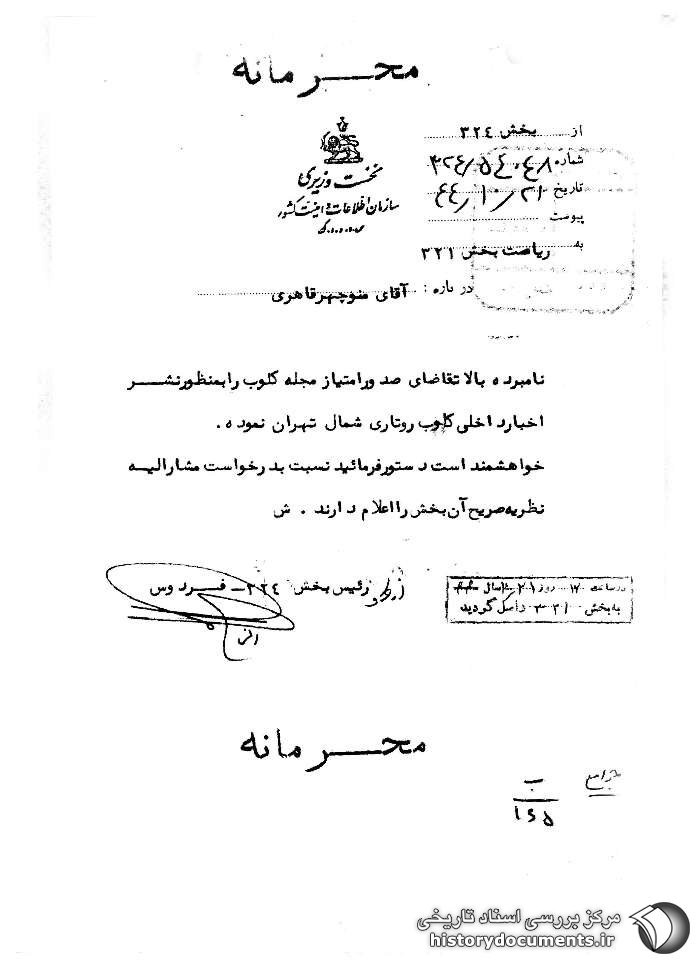 محرمانه
نخست وزیری
سازمان اطلاعات و امنیت کشور
س.ا.و.ا.ک
از بخش ۳۲۴
شماره
تاریخ ۴۴/۱۰/۲۱
پیوست
به ریاست بخش ۳۲۱
در باره : آقای منوچهر قاهری
نامبرده بالا تقاضای صدور امتیاز مجله کلوب را بمنظور نشر
اخبار داخلی کلوب روتاری شمال تهران نموده .
خواهشمند است دستور فرمائید نسبت بدرخواست مشارالیه
نظریه صریح آن بخش را اعلام دارند . ش
رئیس بخش ۳۲۴ - فردوس
در ساعت ۱۷ روز ۲۱ سال
به بخش ۳۲۱ واصل گردید
محرمانه
ب
۱۶۵
مرکز بررسی اسناد تاریخی
historydocuments.ir